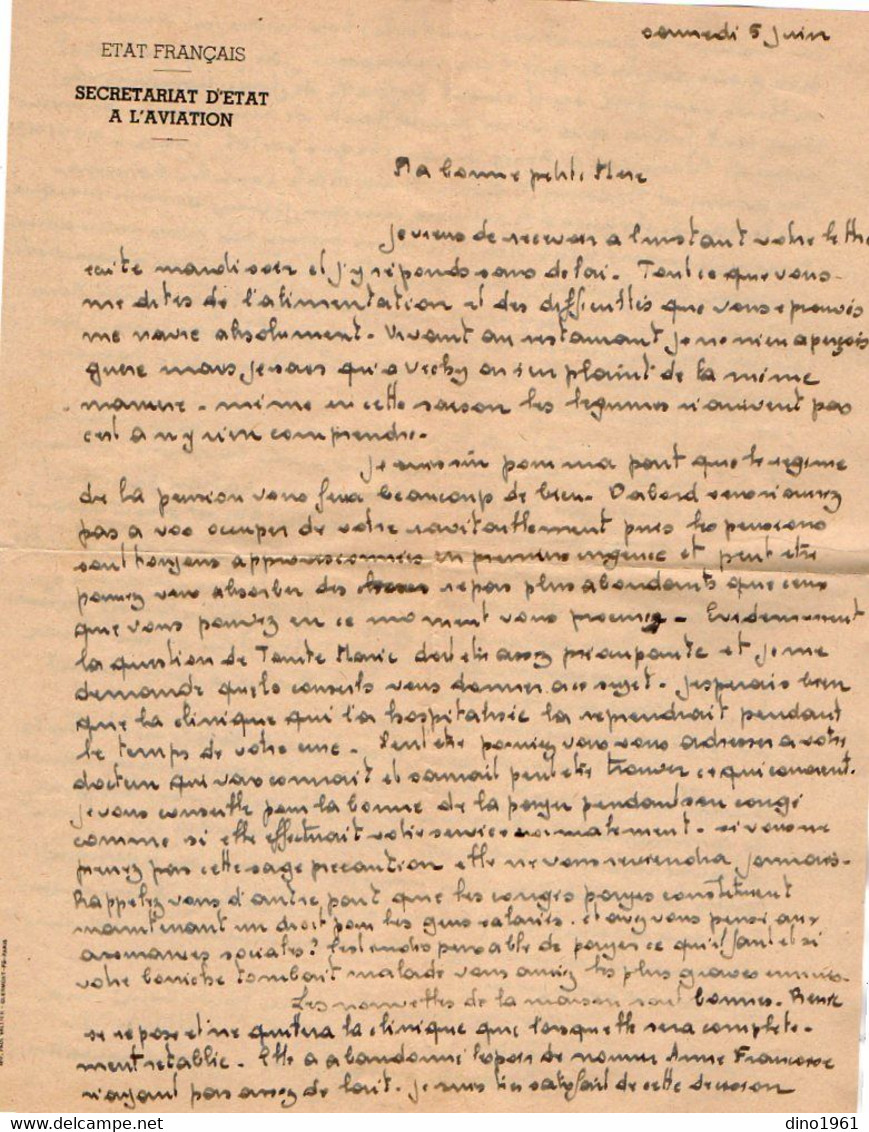 ETAT FRANÇAIS
SECRETARIAT D'ETAT
A L'AVIATION
samedi 5 Juin
Ma bonne petite Mere
Je viens de recevoir a l'instant votre lettre
ecrite mardi soir et j'y réponds sans delai. Tout ce que vous
me dites de l'alimentation et des difficultés que vous eprouvés
me navre absolument. Vivant au restaurant je ne m'en aperçois
guere mais je sais qu'a Vichy on s'en plaint de la même
maniere. même en cette saison les legumes n'arrivent pas
c'est a n'y rien comprendre.
Je suis sûr pour ma part que le regime
de la pension vous fera beaucoup de bien. D'abord vous n'aurez
pas a vous occuper de votre ravitaillement puis les pensions
sont toujours approvisionnées en premiere urgence et peut etre
pourrez vous absorber des repas plus abondants que ceux
que vous pouvez en ce moment vous procurer. Evidemment
la question de Tante Marie doit etre assez préoccupante et je me
demande quels conseils vous donner a ce sujet. J'esperais bien
que la clinique qui l'a hospitalisée la reprendrait pendant
le temps de votre cure. Peut etre pourriez vous vous adresser a votre
docteur qui vous connait et saurait peut etre trouver ce qui convient.
Je vous conseille pour la bonne de la payer pendant son congé
comme si elle effectuait votre service normalement. si vous ne
prenez pas cette sage precaution elle ne vous reviendra jamais.
Rappelez vous d'autre part que les congés payés constituent
maintenant un droit pour les gens salariés. et avez vous pensé aux
assurances sociales? C'est indispensable de payer ce qu'il faut et si
votre boniche tombait malade vous auriez les plus graves ennuis.
Les nouvelles de la maison sont bonnes.
se repose et ne quittera la clinique que lorsqu'elle sera complete-
ment retablie. Elle a abandonné l'espoir de nourrir Anne Françoise
n'ayant pas assez de lait. Je suis tres satisfait de cette decision
dino1961